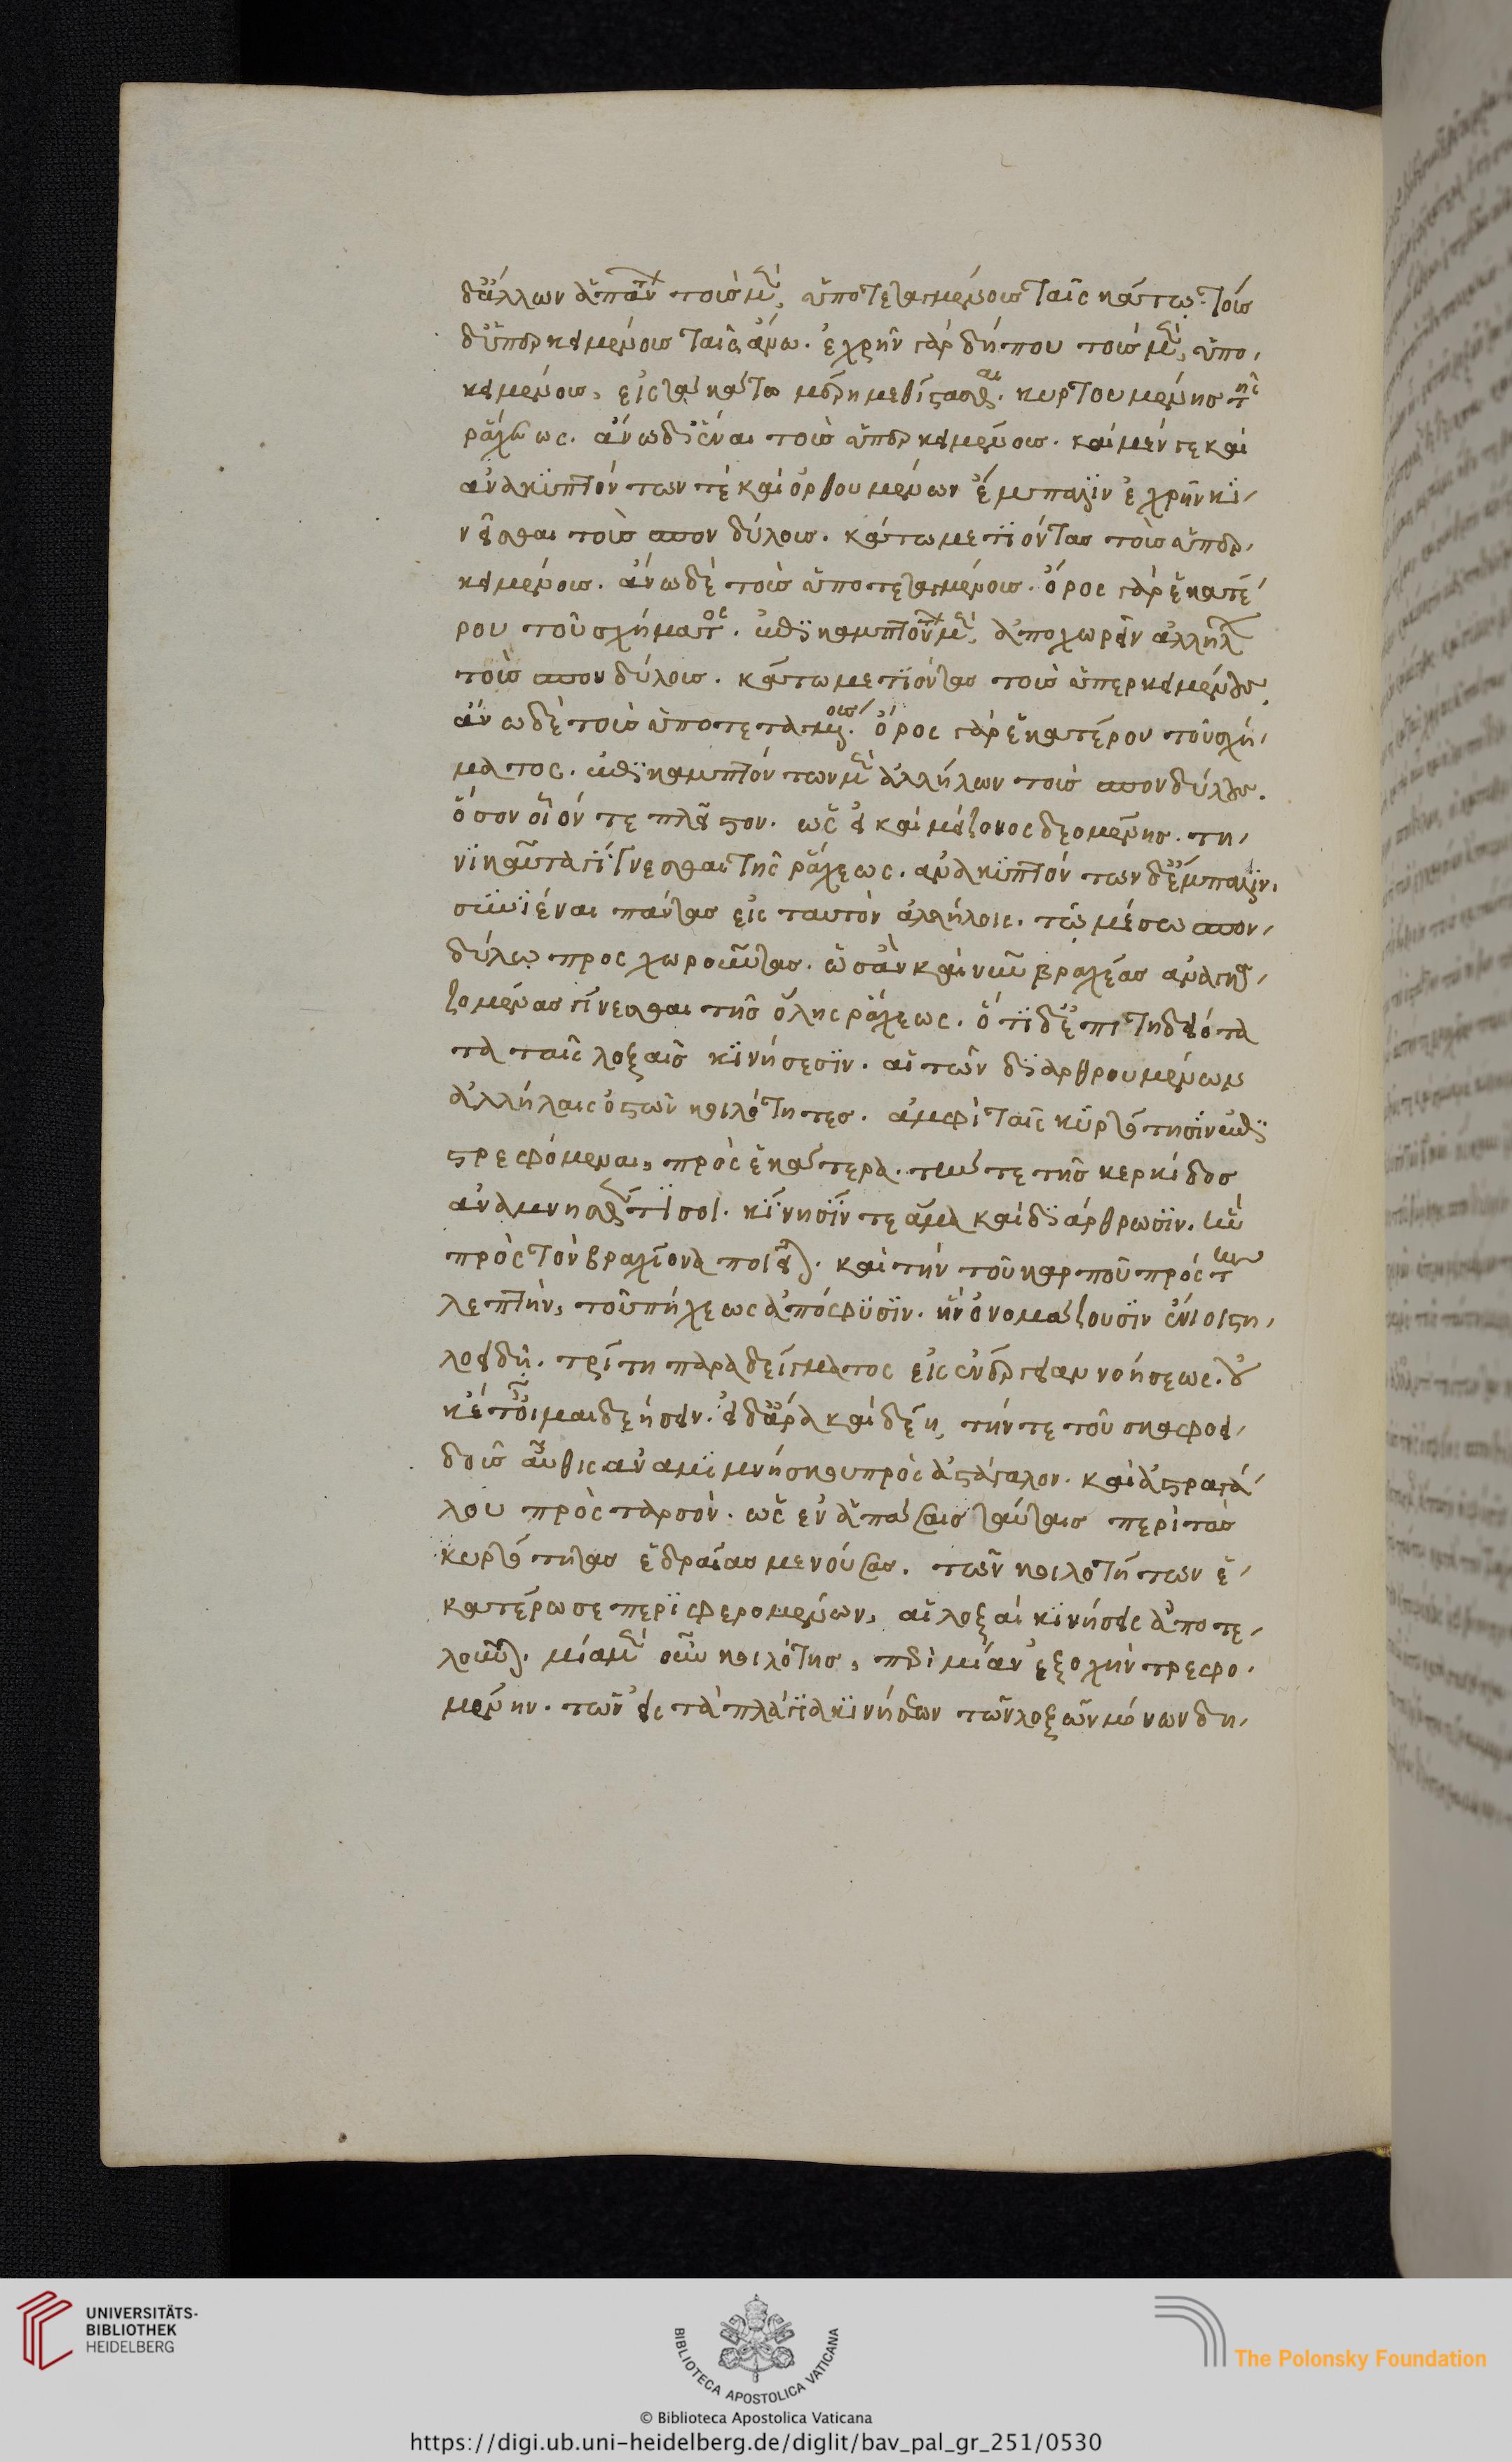 δ' ἄλλων ἁπάντων τοῖς μὲν ὑποτεταγμένοις ταῖς κάτω. τοῖς
δ' ὑπερκειμένοις ταῖς ἄνω. ἐχρῆν γὰρ δήπου τοῖς μὲν ὑπο
κειμένοις, εἰς τὰ κάτω μέρη μεθίστασθαι. κυρτουμένης τῆς
ράχεως. ἄνω δ' ἰέναι τοῖς ὑπερκειμένοις. καὶ μέν γε καὶ
ἀνακυπτόντων τὲ καὶ ὀρθουμένων ἔμπαλιν ἐχρῆν κι
νεῖσθαι τοῖς σπονδύλοις. κάτω μετιόντας τοῖς ὑπερ
κειμένοις. ἄνω δὲ τοῖς ὑποτεταγμένοις. ὅρος γὰρ ἑκατέ
ρου τοῦ σχήματος. ἐπικαμπτόντων μὲν, ἀποχωρεῖν ἀλλήλων
τοῖς σπονδύλοις. κάτω μετιόντας τοῖς ὑπερκειμένοις
ἄνω δὲ τοῖς ὑποτεταγμένοις. ὅρος γὰρ ἑκατέρου τοῦ σχή
ματος. ἐπικαμπτόντων μὲν ἀλλήλων τοῖς σπονδύλοις.
ὅσον οἷόν τε πλεῖστον. ὡς εἰ καὶ μείζονος δεομένης. τη
νικαῦτα γίγνεσθαι τῆς ράχεως. ἀνακυπτόντων δ' ἔμπαλιν.
συνιέναι πάντας εἰς ταυτὸν ἀλλήλοις. τῷ μέσῳ σπον
δύλῳ προσχωροῦντας. ὡς ἂν καὶ νῦν βραχέας ἀναγκα
ζομένας γίνεσθαι τῆς ὅλης ράχεως. ὅτι δ' ἐπιτηδειότα
τα ταῖς λοξαῖς κινήσεσιν. αἱ τῶν διαρθρουμένων
ἀλλήλαις ὀστῶν κοιλότητες. ἀμφὶ ταῖς κυρτότησιν ἐπι
στρεφόμεναι, πρὸς ἑκάτερα. τήν τε τῆς κερκίδος
ἀναμνησθέντι σοι. κίνησίν τε ἅμα καὶ διάρθρωσιν. ἣν
πρὸς τὸν βραχίονα ποιεῖται. καὶ τὴν τοῦ καρποῦ πρὸς τὴν
λεπτὴν, τοῦ πήχεως ἀπόφυσιν. ἣν ὀνομάζουσιν ἔνιοι στη
λοειδῆ. τρίτη παραδείγματος εἰς ἐνάργειαν νοήσεως. οὐ
κέτ' οἶμαι δεήσειν. εἰ δ' ἄρα καὶ δέῃ, τήν τε τοῦ σκαφοει
δοῦς αὖθις ἀναμιμνήσκου πρὸς ἀστράγαλον. καὶ ἀστραγά
λου πρὸς ταρσὸν. ὡς ἐν ἁπάσαις ταύταις περὶ τὰς
κυρτότητας ἑδραίας μενούσας. τῶν κοιλοτήτων ἑ
κατέρωσε περιφερομένων, αἱ λοξαὶ κινήσεις ἀποτε
λοῦνται. μία μὲν οὖν κοιλότης, περὶ μίαν ἐξοχὴν τρεφο
μένην. τῶν εἰς τὰ πλάγια κινήσεων τῶν λοξῶν μόνων δη
UNIVERSITÄTS-
BIBLIOTHEK
HEIDELBERG
BIBLIOTECA APOSTOLICA VATICANA
The Polonsky Foundation
© Biblioteca Apostolica Vaticana
https://digi.ub.uni-heidelberg.de/diglit/bav_pal_gr_251/0530